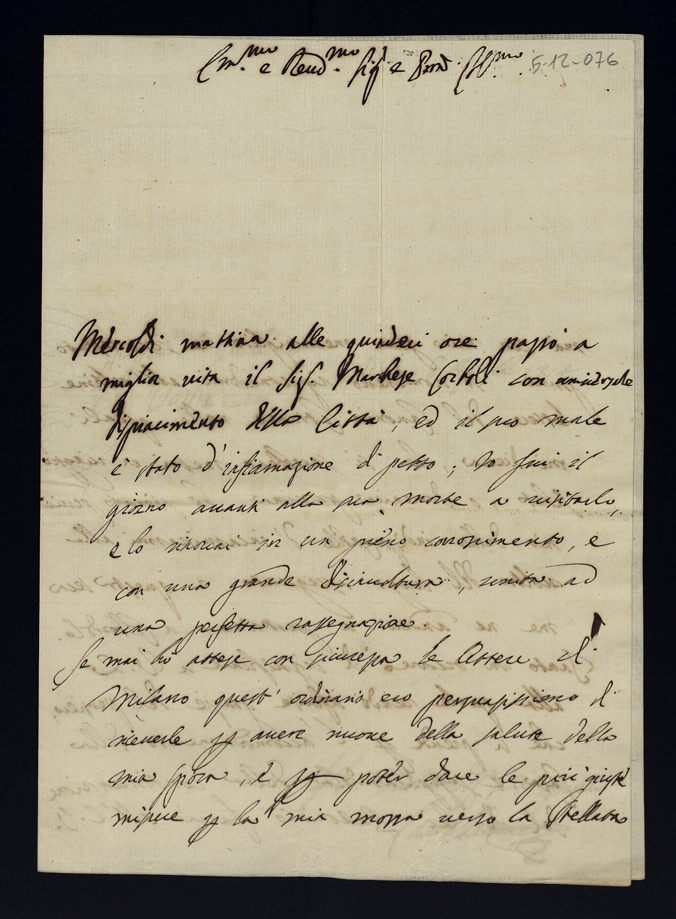 Em.mo e Rev.mo Sig. e Pron. Col.mo 5-12-076
Mercoldì mattina alle quindeci ore passò a
miglior vita il Sig. Marchese Corboli con universale
dispiacimento della Città, ed il suo male
è stato d'infiamazione di petto; Io fui il
giorno avanti alla sua morte a visitarlo,
e lo ritrovai in un pieno conoscimento, e
con una grande disinvoltura, unita ad
una perfetta rassegnazione.
Se mai hò attese con premura le lettere di
Milano quest' ordinario ero persuasissimo di
riceverle per avere nuove della salute della
mia sposa, e per poter dare le più giuste
misure per la mia mossa verso la Stellata